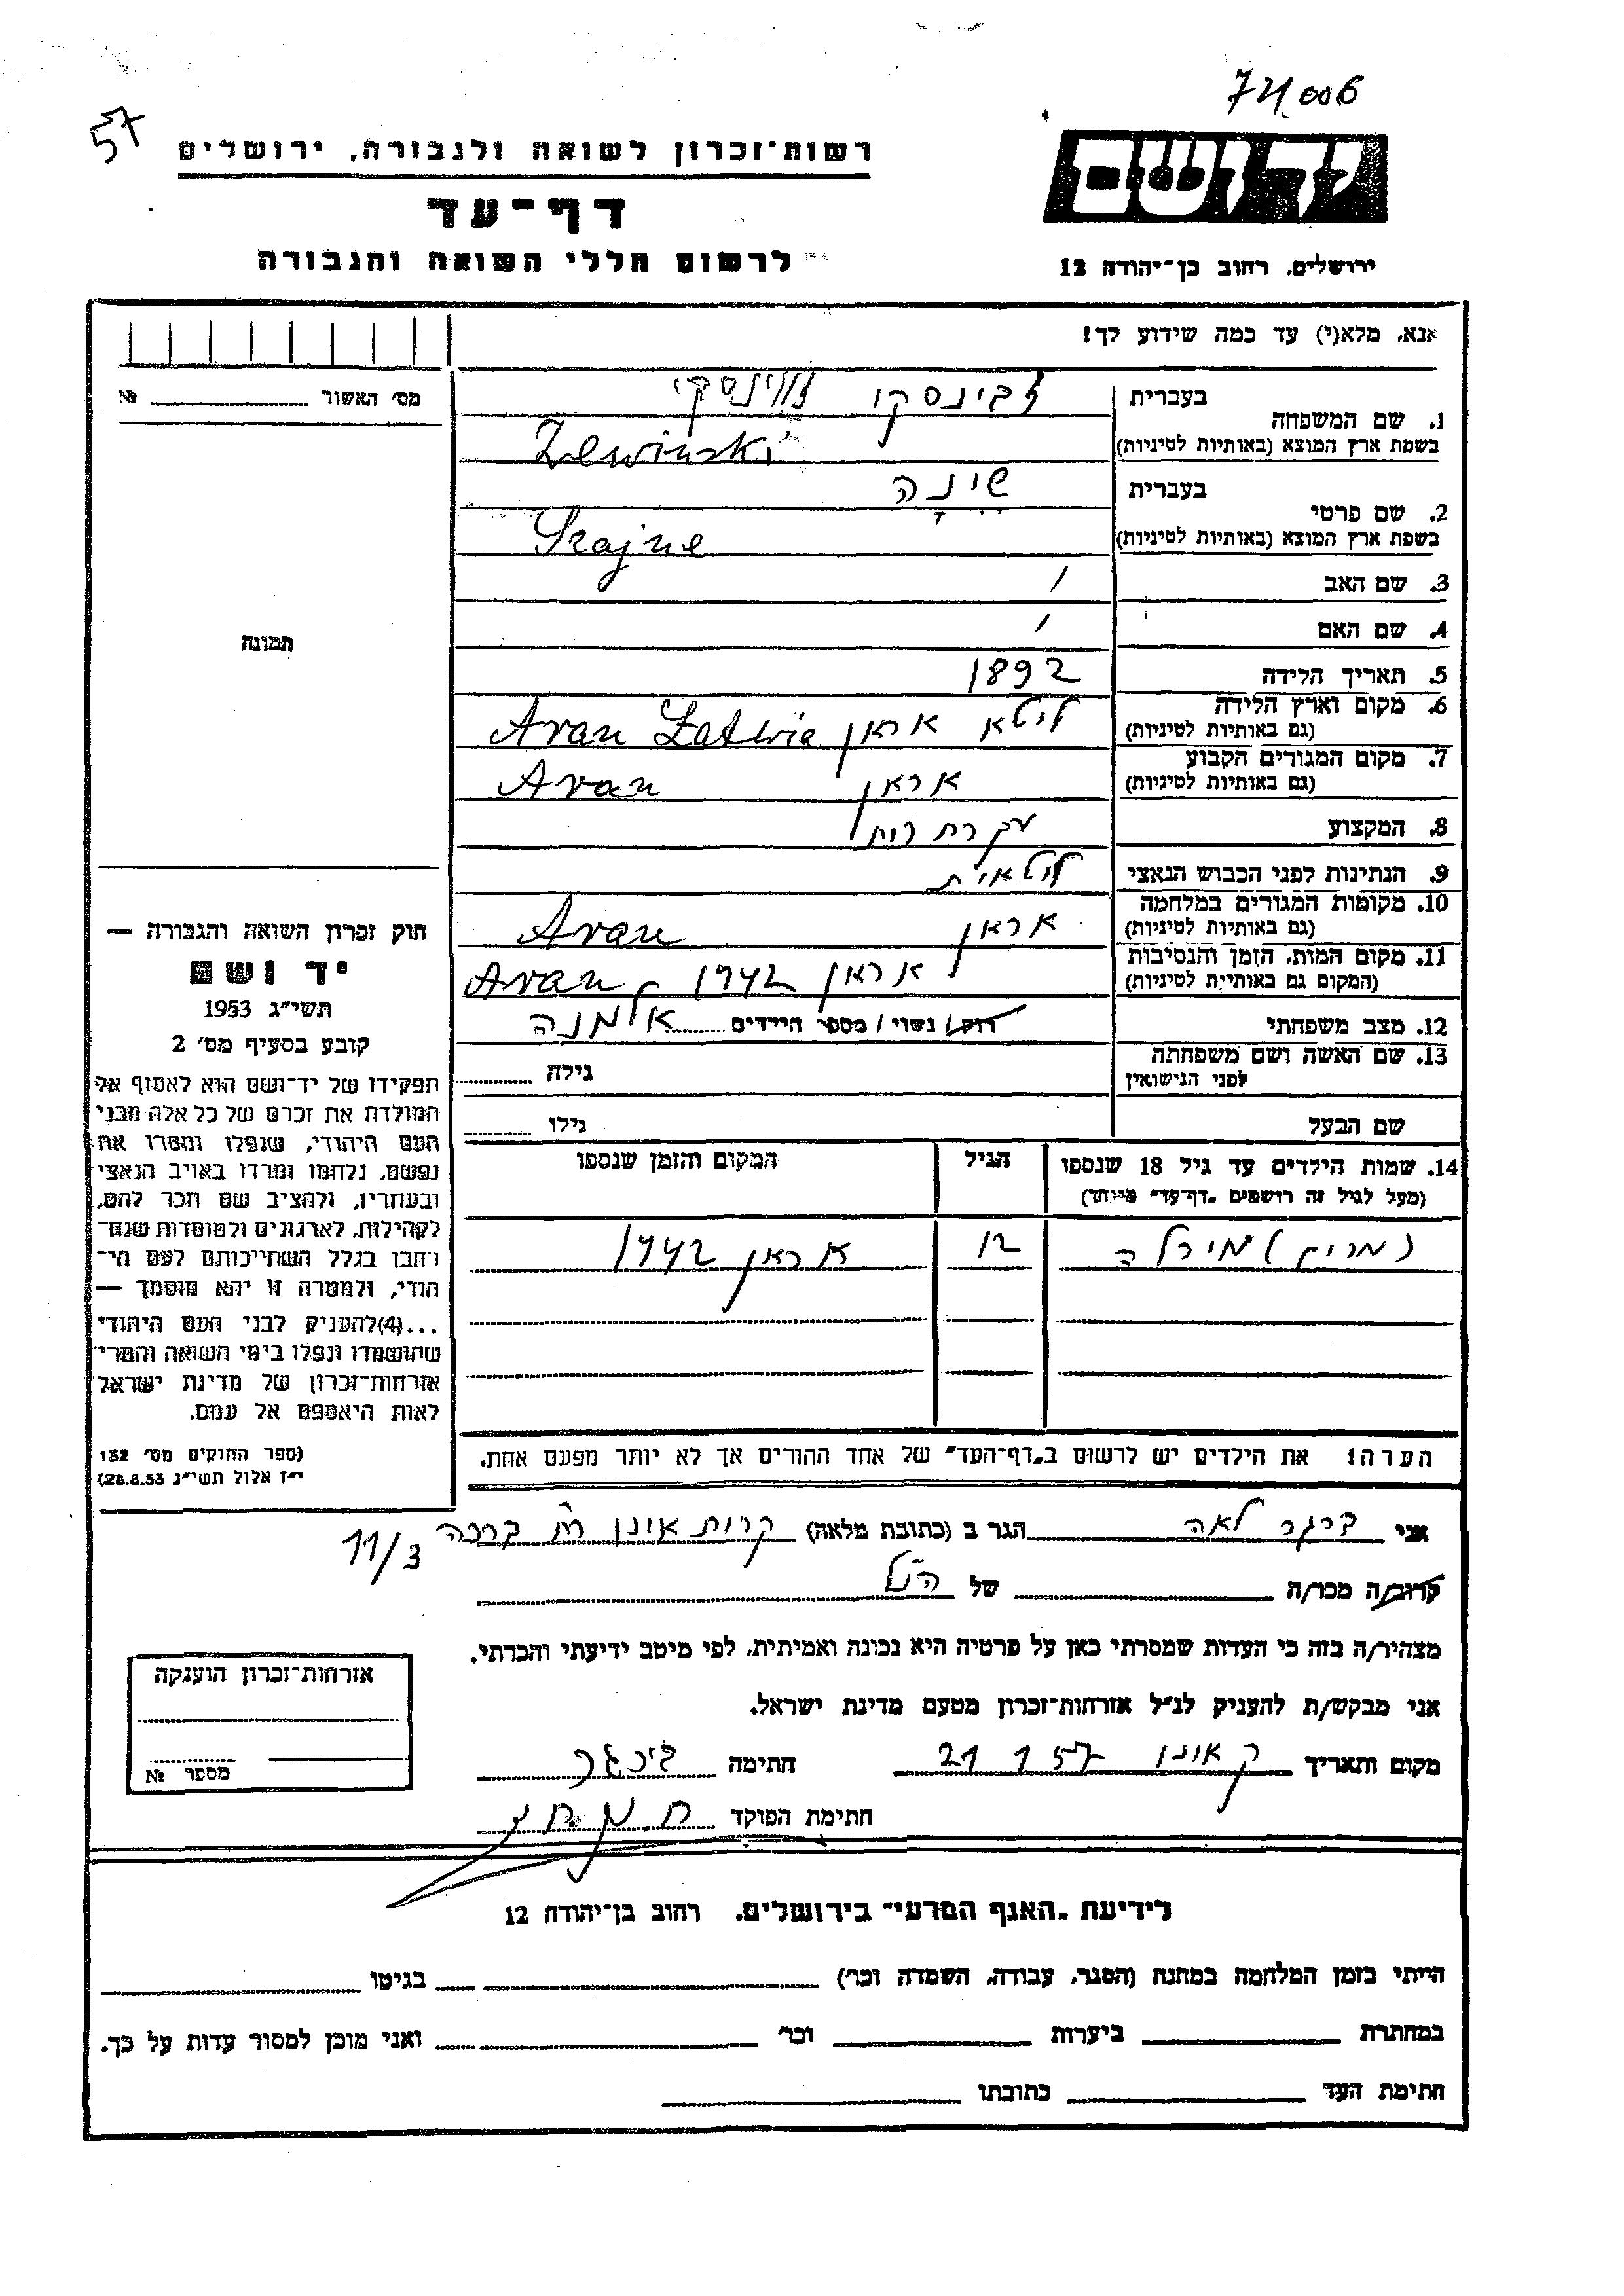 74006
57
רשות־זכרון לשואה ולגבורה, ירושלים
יד ושם
דף־עד
לרשום חללי השואה והגבורה
ירושלים, רחוב בן־יהודה 12
אנא, מלא(י) עד כמה שידוע לך!
מס׳ האשור № 
1. שם המשפחה
בעברית זבינסקי
בשפת ארץ המוצא (באותיות לטיניות) Zewinski
2. שם פרטי
בעברית שינה
בשפת ארץ המוצא (באותיות לטיניות) Szajne
3. שם האב /
4. שם האם /
תמונה
5. תאריך הלידה 1892
6. מקום וארץ הלידה ליטא אראן Avan Latwia
(גם באותיות לטיניות)
7. מקום המגורים הקבוע אראן Avan
(גם באותיות לטיניות)
8. המקצוע עקרת בית
9. הנתינות לפני הכבוש הנאצי ליטאית
10. מקומות המגורים במלחמה אראן Avan
(גם באותיות לטיניות)
11. מקום המות, הזמן והנסיבות אראן 1942 - Avan
(המקום גם באותיות לטיניות)
12. מצב משפחתי רוק/ נשוי/ מספר הילדים אלמנה
13. שם האשה ושם משפחתה
לפני הנישואין גילה
שם הבעל גילו
חוק זכרון השואה והגבורה —
יד ושם
תשי״ג 1953
קובע בסעיף מס׳ 2
תפקידו של יד־ושם הוא לאסוף אל
המולדת את זכרם של כל אלה מבני
העם היהודי, שנפלו ומסרו את
נפשם, נלחמו ומרדו באויב הנאצי
ובעוזריו, ולהציב שם וזכר להם,
לקהילות, לארגונים ולמוסדות שנח־
רבו בגלל השתייכותם לעם הי־
הודי, ולמטרה זו יהא מוסמך —
...(4) להעניק לבני העם היהודי
שהושמדו ונפלו בימי השואה והמרי
אזרחות־זכרון של מדינת ישראל
לאות היאספם אל עמם.
(ספר החוקים מס׳ 132
י״ז אלול תשי״ג 28.8.53)
14. שמות הילדים עד גיל 18 שנספו הגיל המקום והזמן שנספו
(מעל לגיל זה רושמים „דף־עד״ מיוחד)
(מרים) מירלה 12 אראן 1942
הערה! את הילדים יש לרשום ב„דף־העד״ של אחד ההורים אך לא יותר מפעם אחת.
אני ברגר לאה הגר ב (כתובת מלאה) קרית אונו ברכה
11/3
קרוב/ה מכר/ה של הנ״ל
מצהיר/ה בזה כי העדות שמסרתי כאן על פרטיה היא נכונה ואמיתית, לפי מיטב ידיעתי והכרתי.
אני מבקש/ת להעניק לנ״ל אזרחות־זכרון מטעם מדינת ישראל.
מקום ותאריך ק אונו 21 1 57 חתימה ברגר
חתימת הפוקד
אזרחות־זכרון הוענקה
מספר №
לידיעת „האגף המדעי״ בירושלים, רחוב בן־יהודה 12
הייתי בזמן המלחמה במחנה (הסגר, עבודה, השמדה וכו׳) בגיטו
במחתרת ביערות וכו׳ ואני מוכן למסור עדות על כך.
חתימת העד כתובתו